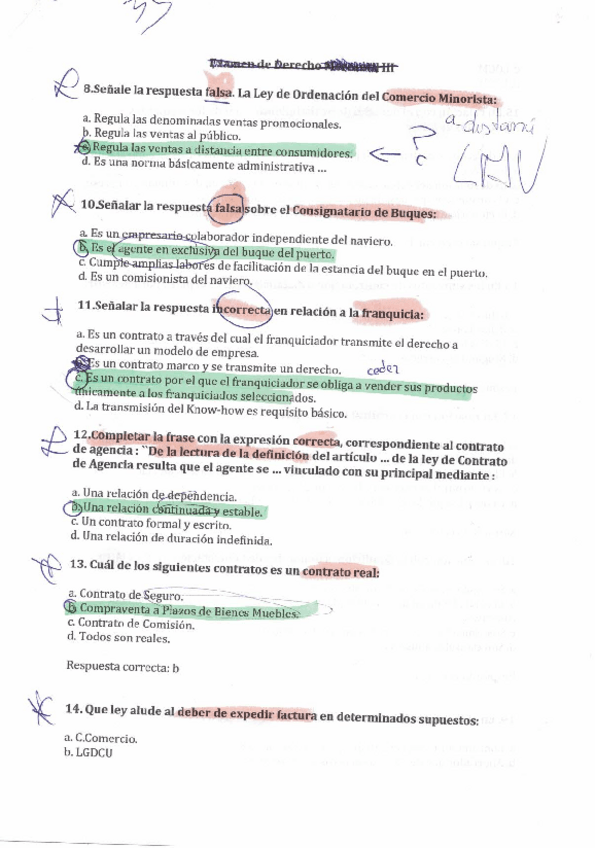 Examen de Derecho III
8.Señale la respuesta falsa. La Ley de Ordenación del Comercio Minorista:
a. Regula las denominadas ventas promocionales.
b. Regula las ventas al público.
c. Regula las ventas a distancia entre consumidores.
d. Es una norma básicamente administrativa ...
? c
LMV
10.Señalar la respuesta falsa sobre el Consignatario de Buques:
a. Es un empresario colaborador independiente del naviero.
b. Es el agente en exclusiva del buque del puerto.
c. Cumple amplias labores de facilitación de la estancia del buque en el puerto.
d. Es un comisionista del naviero.
11.Señalar la respuesta incorrecta en relación a la franquicia:
a. Es un contrato a través del cual el franquiciador transmite el derecho a
desarrollar un modelo de empresa.
Es un contrato marco y se transmite un derecho. ceder
c. Es un contrato por el que el franquiciador se obliga a vender sus productos
únicamente a los franquiciados seleccionados.
d. La transmisión del Know-how es requisito básico.
12.Completar la frase con la expresión correcta, correspondiente al contrato
de agencia : ``De la lectura de la definición del artículo ... de la ley de Contrato
de Agencia resulta que el agente se ... vinculado con su principal mediante :
a. Una relación de dependencia.
b. Una relación continuada y estable.
c. Un contrato formal y escrito.
d. Una relación de duración indefinida.
13. Cuál de los siguientes contratos es un contrato real:
a. Contrato de Seguro.
b. Compraventa a Plazos de Bienes Muebles.
c. Contrato de Comisión.
d. Todos son reales.
Respuesta correcta: b
14. Que ley alude al deber de expedir factura en determinados supuestos:
a. C.Comercio.
b. LGDCU